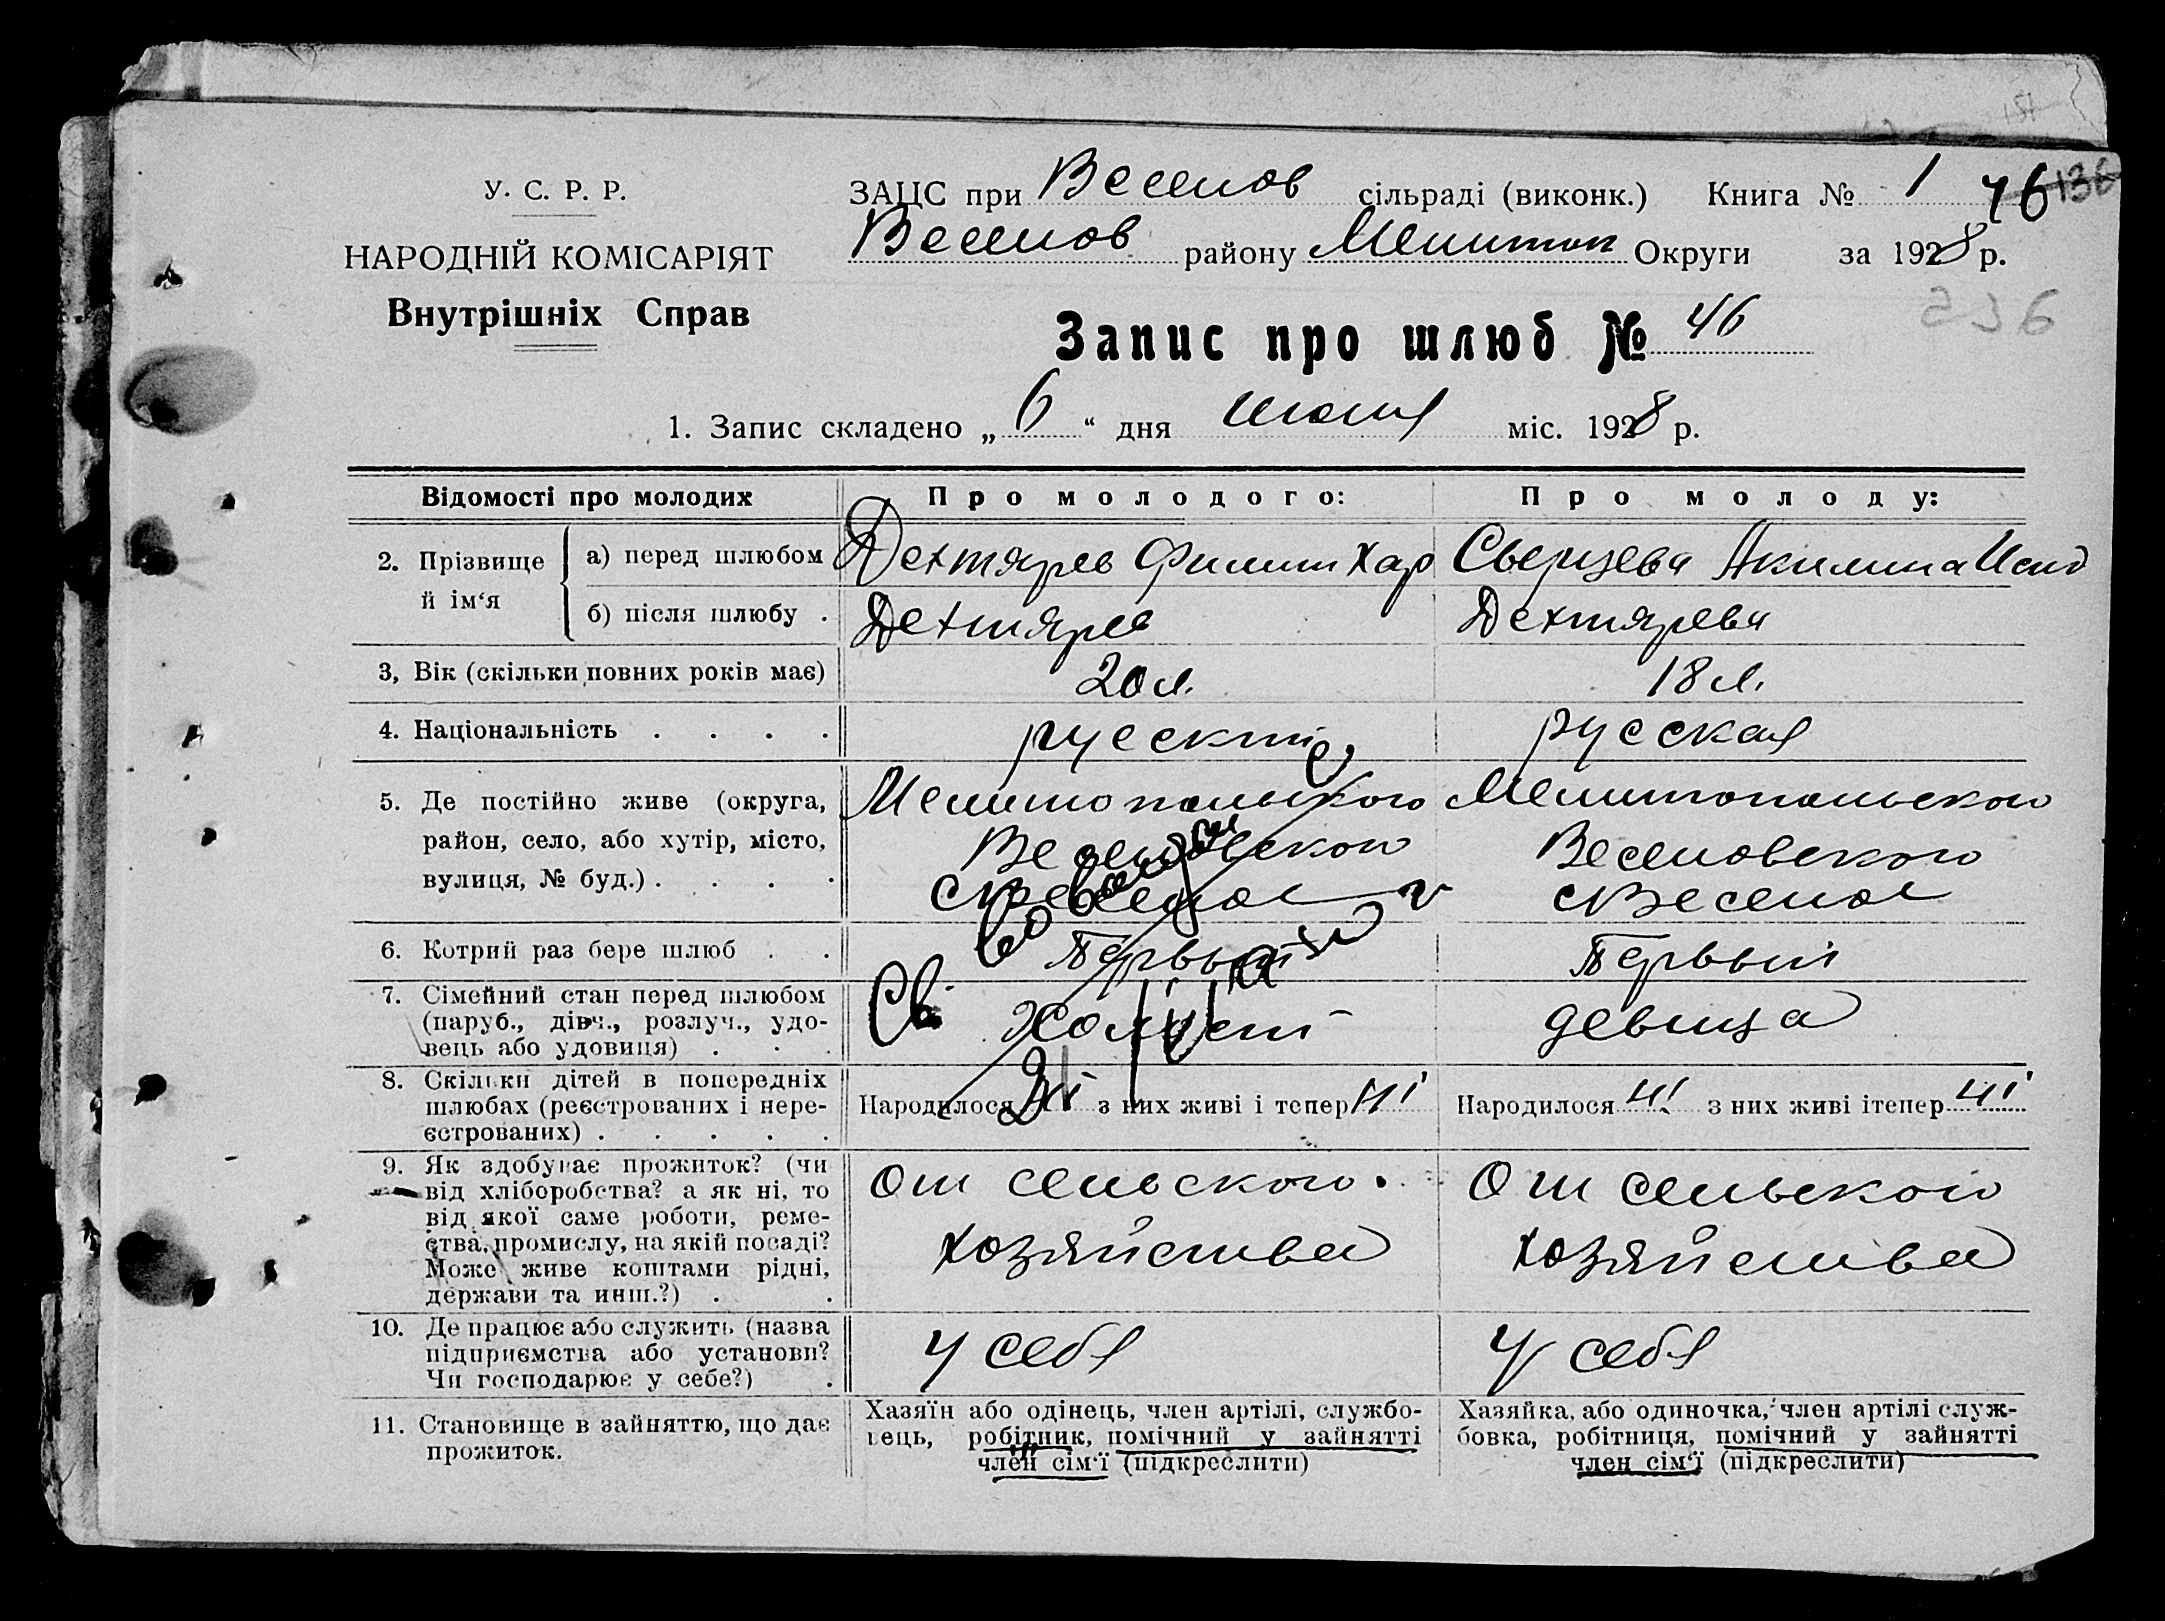 У. С. Р. Р.
НАРОДНІЙ КОМІСАРІЯТ
Внутрішніх Справ
ЗАЦС при Веселов сільраді (виконк.) Книга № 1 46 136
Веселов району Мелитоп Округи за 1928 р.
Запис про шлюб № 46
1. Запис складено „ 6 “ дня июля міс. 1928 р.
Відомості про молодих
Про молодого:
Про молоду:
2. Прізвище й ім‘я
а) перед шлюбом
Дехтярев Филип Хар
Сверцева Акилина Исид
б) після шлюбу .
Дехтярев
Дехтярева
3, Вік (скільки повних років має)
20 л.
18 л.
4. Національність . . . .
русский
русская
5. Де постійно живе (округа,
район, село, або хутір, місто,
вулиця, № буд.) . . . .
Мелитопольского
Веселовского
с Веселое
Мелитопольского
Веселовского
с Веселое
6. Котрий раз бере шлюб . .
Первый
Первый
7. Сімейний стан перед шлюбом
(паруб., дівч., розлуч., удо-
вець або удовиця) . . .
Холост
девица
Св.
8. Скільки дітей в попередніх
шлюбах (реєстрованих і нере-
єстрованих) . . . . .
Народилося ні з них живі і тепер ні
Народилося ні з них живі і тепер ні
9. Як здобуває прожиток? (чи
від хліборобства? а як ні, то
від якої саме роботи, реме-
ства, промислу, на якій посаді?
Може живе коштами рідні,
держави та инш.?) . .
От сельского
хозяйства
От сельского
хозяйства
10. Де працює або служить (назва
підприємства або установи?
Чи господарює у себе?) .
У себя
У себя
11. Становище в зайняттю, що дає
прожиток.
Хазяїн або одінець, член артілі, службо-
вець, робітник, помічний у зайнятті
член сім‘ї (підкреслити)
Хазяйка, або одиночка, член артілі служ-
бовка, робітниця, помічний у зайнятті
член сім‘ї (підкреслити)